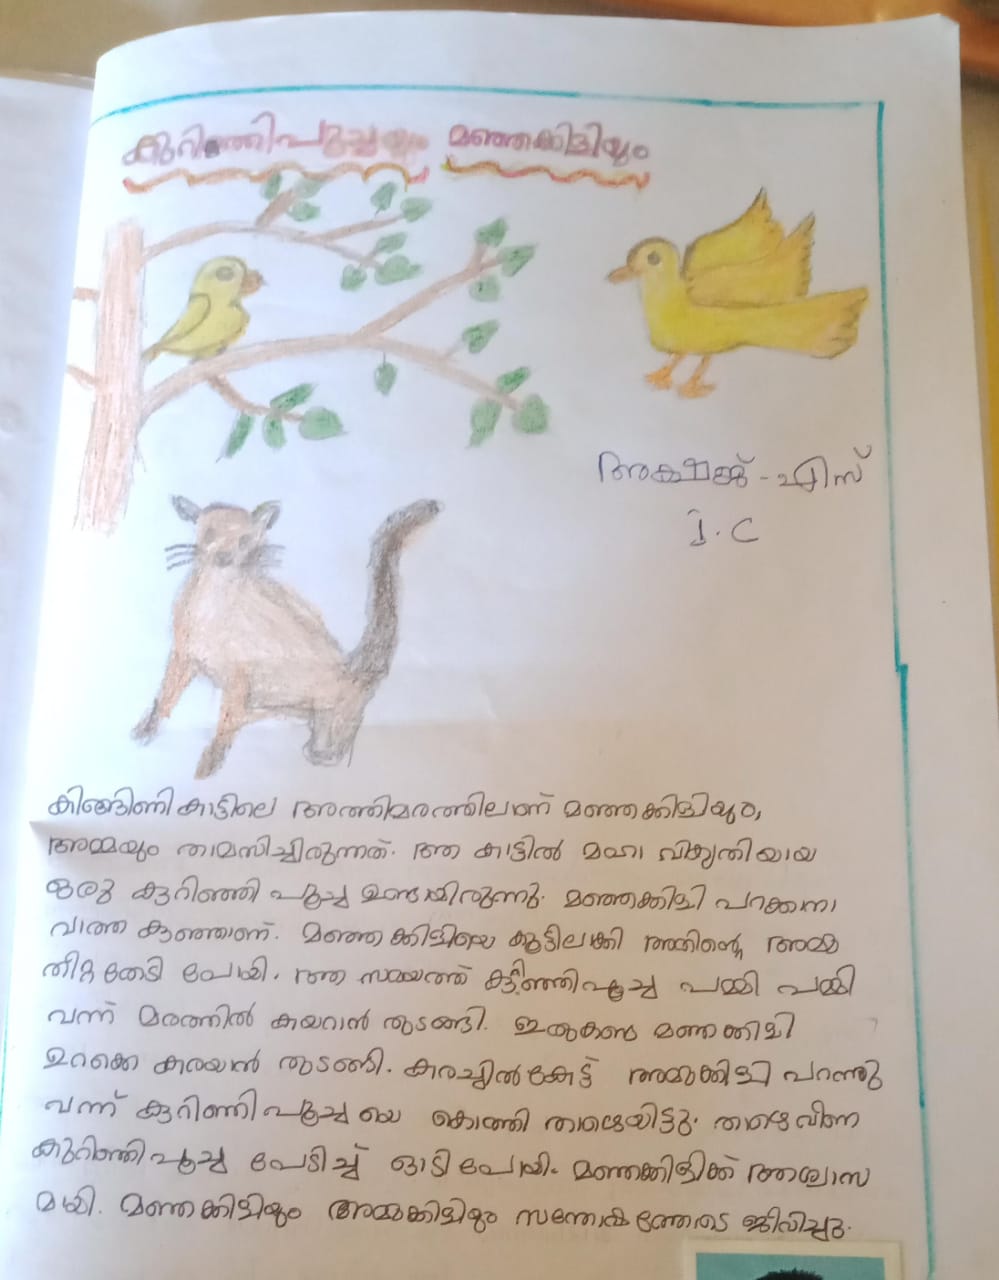 കുറിഞ്ഞിപൂച്ചയും മഞ്ഞക്കിളിയും
എസ്
I. C
കിങ്ങിണി കാട്ടിലെ അത്തിമരത്തിലാണ് മഞ്ഞക്കിളിയും,
അമ്മയും താമസിച്ചിരുന്നത്. ആ കാട്ടിൽ മഹാ വികൃതിയായ
ഒരു കുറിഞ്ഞി പൂച്ച ഉണ്ടായിരുന്നു. മഞ്ഞക്കിളി പറക്കനാ
വാത്ത കുഞ്ഞാണ്. മഞ്ഞക്കിളിയെ കൂട്ടിലാക്കി അതിന്റെ അമ്മ
തീറ്റ തേടി പോയി. ആ സമയത്ത് കുറിഞ്ഞിപൂച്ച പമ്മി പമ്മി
വന്ന് മരത്തിൽ കയറാൻ തുടങ്ങി. ഇതുകണ്ട മഞ്ഞക്കിളി
ഉറക്കെ കരയാൻ തുടങ്ങി. കരച്ചിൽ കേട്ട് അമ്മക്കിളി പറന്നു
വന്ന് കുറിഞ്ഞിപൂച്ചയെ കൊത്തി താഴെയിട്ടു. താഴെ വീണ
കുറിഞ്ഞിപൂച്ച പേടിച്ച് ഓടിപോയി. മഞ്ഞക്കിളിക്ക് ആശ്വാസ
മായി. മഞ്ഞക്കിളിയും അമ്മക്കിളിയും സന്തോഷത്തോടെ ജീവിച്ചു.